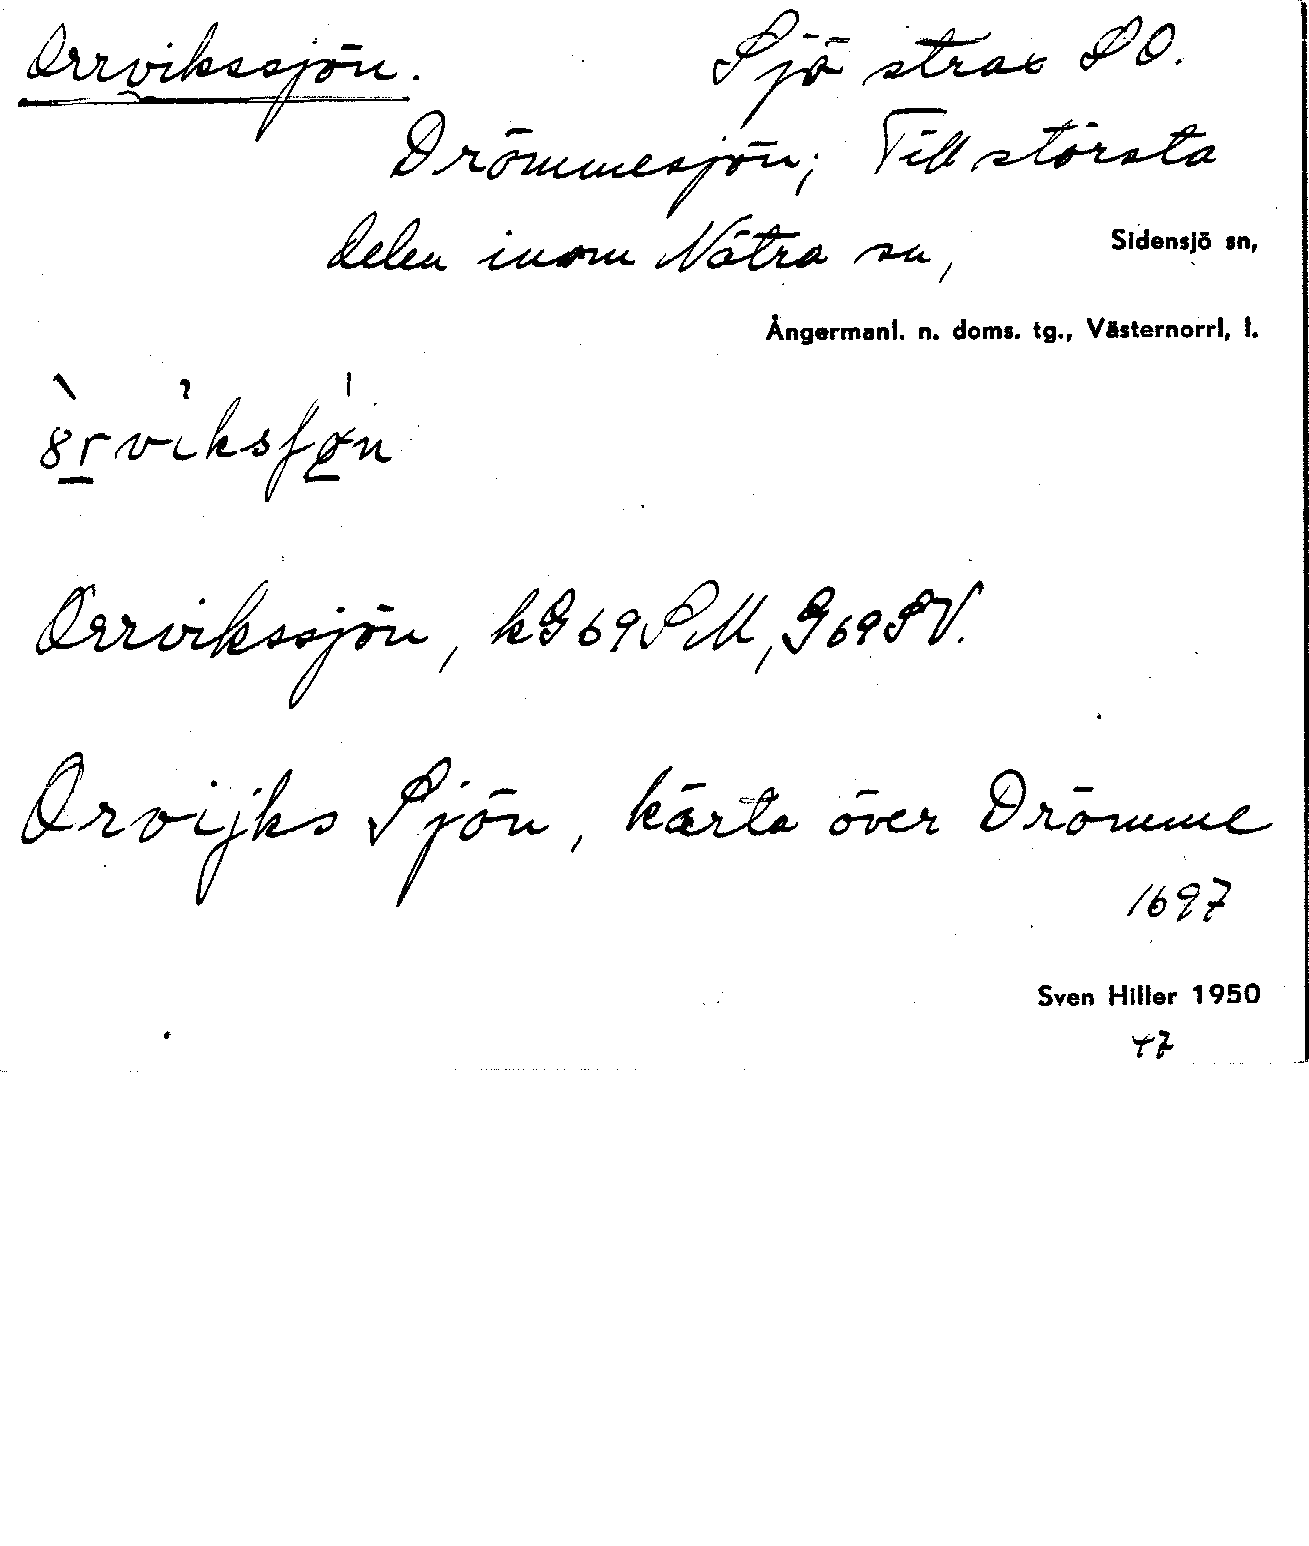 Orrvikssjön. Sjö strax SO.
Drömmesjön; Till största
delen inom Nätra sn, Sidensjö sn,
Ångermanl. n. doms. tg., Västernorrl, l.
Orrvikssjön, kG69SM, G69SV.
Orvijks Sjön, karta över Drömme
1697
Sven Hiller 1950
47